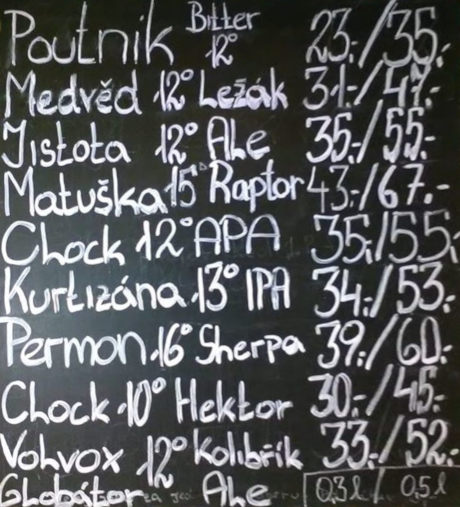 Poutnik Bitter 12° 23.-/35.-
Medvěd 12° Ležák 31.-/47.-
Jistota 12° Ale 35.-/55.-
Matuška 15° Raptor 43.-/67.-
Chock 12° APA 35.-/55.-
Kurtizána 13° IPA 34.-/53.-
Permon 16° Sherpa 39.-/60.-
Chock 10° Hektor 30.-/45.-
Volvox Globátor 12° Kolibřík Ale 33.-/52.-
0,3 l / 0,5 l